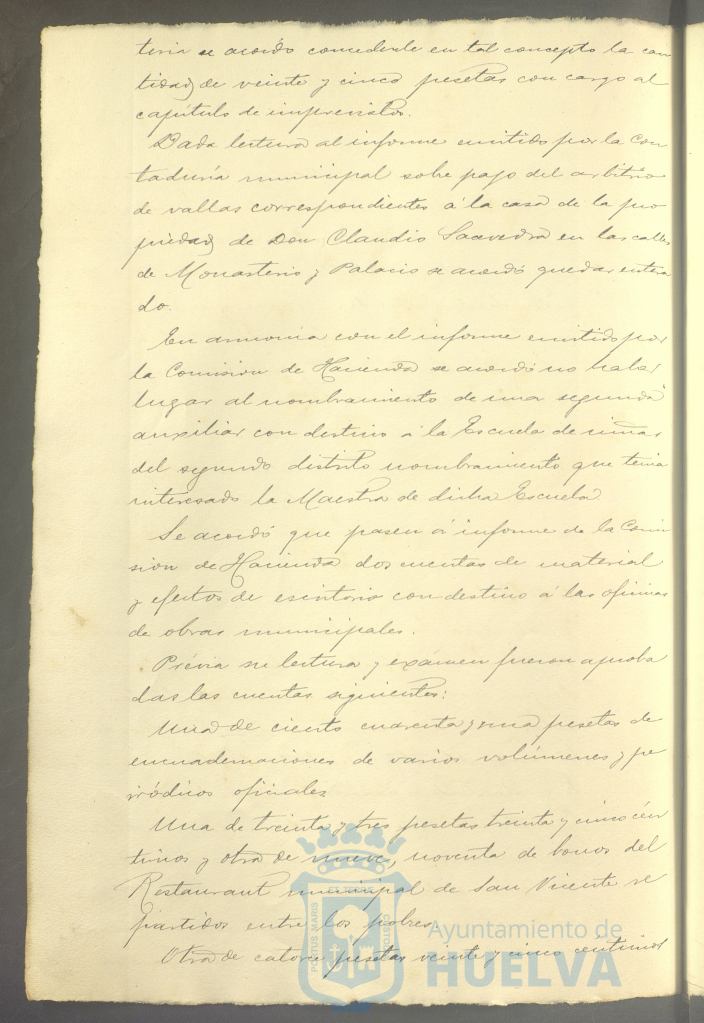 teria se acordó concederle en tal concepto la can
tidad de veinte y cinco pesetas con cargo al
capítulo de imprevistos.
Dada lectura al informe emitido por la Con
taduría municipal sobre pago del arbitrio
de vallas correspondientes á la casa de la pro
piedad de Don Claudio Saavedra en las calles
de Monasterio y Palacio se acordó quedar entera
do.
En armonia con el informe emitido por
la Comision de Hacienda se acordó no haber
lugar al nombramiento de una segunda
auxiliar con destino á la Escuela de niñas
del segundo distrito nombramiento que tenia
interesado la Maestra de dicha Escuela
Se acordó que pasen á informe de la Comi
sion de Hacienda dos cuentas de material
y efectos de escritorio con destino á las oficinas
de obras municipales.
Prévia su lectura y exámen fueron aproba
das las cuentas siguientes:
Una de ciento cuarenta y una pesetas de
encuadernaciones de varios volúmenes y pe
riódicos oficiales
Una de treinta y tres pesetas treinta y cinco cén
timos y otra de nueve, noventa de bonos del
Restaurant municipal de San Vicente re
partidos entre los pobres
Otra de catorce pesetas veinte y cinco centimos
PORTUS MARIS
CUSTODIA
Ayuntamiento de
HUELVA